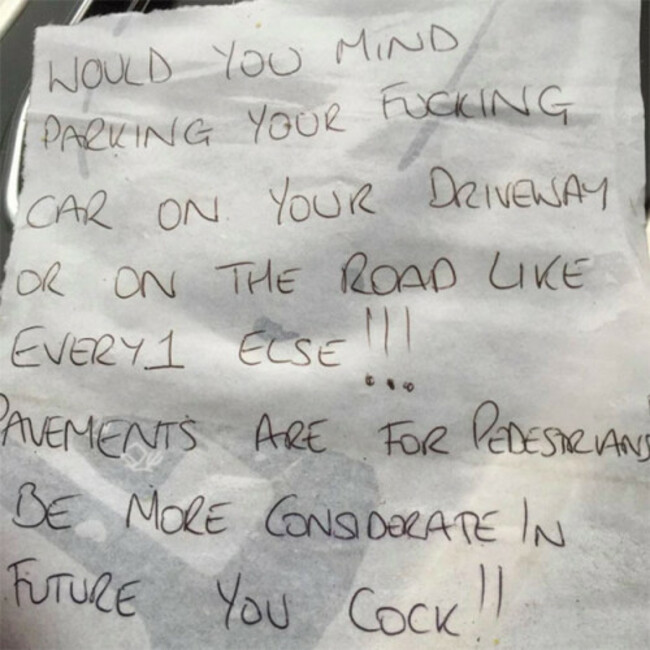 WOULD YOU MIND
PARKING YOUR FUCKING
CAR ON YOUR DRIVEWAY
OR ON THE ROAD LIKE
EVERY1 ELSE!!!
PAVEMENTS ARE FOR PEDESTRIANS
BE MORE CONSIDERATE IN
FUTURE YOU COCK!!